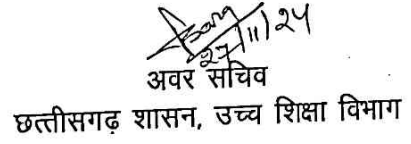 27/11/24
अवर सचिव
छत्तीसगढ़ शासन, उच्च शिक्षा विभाग